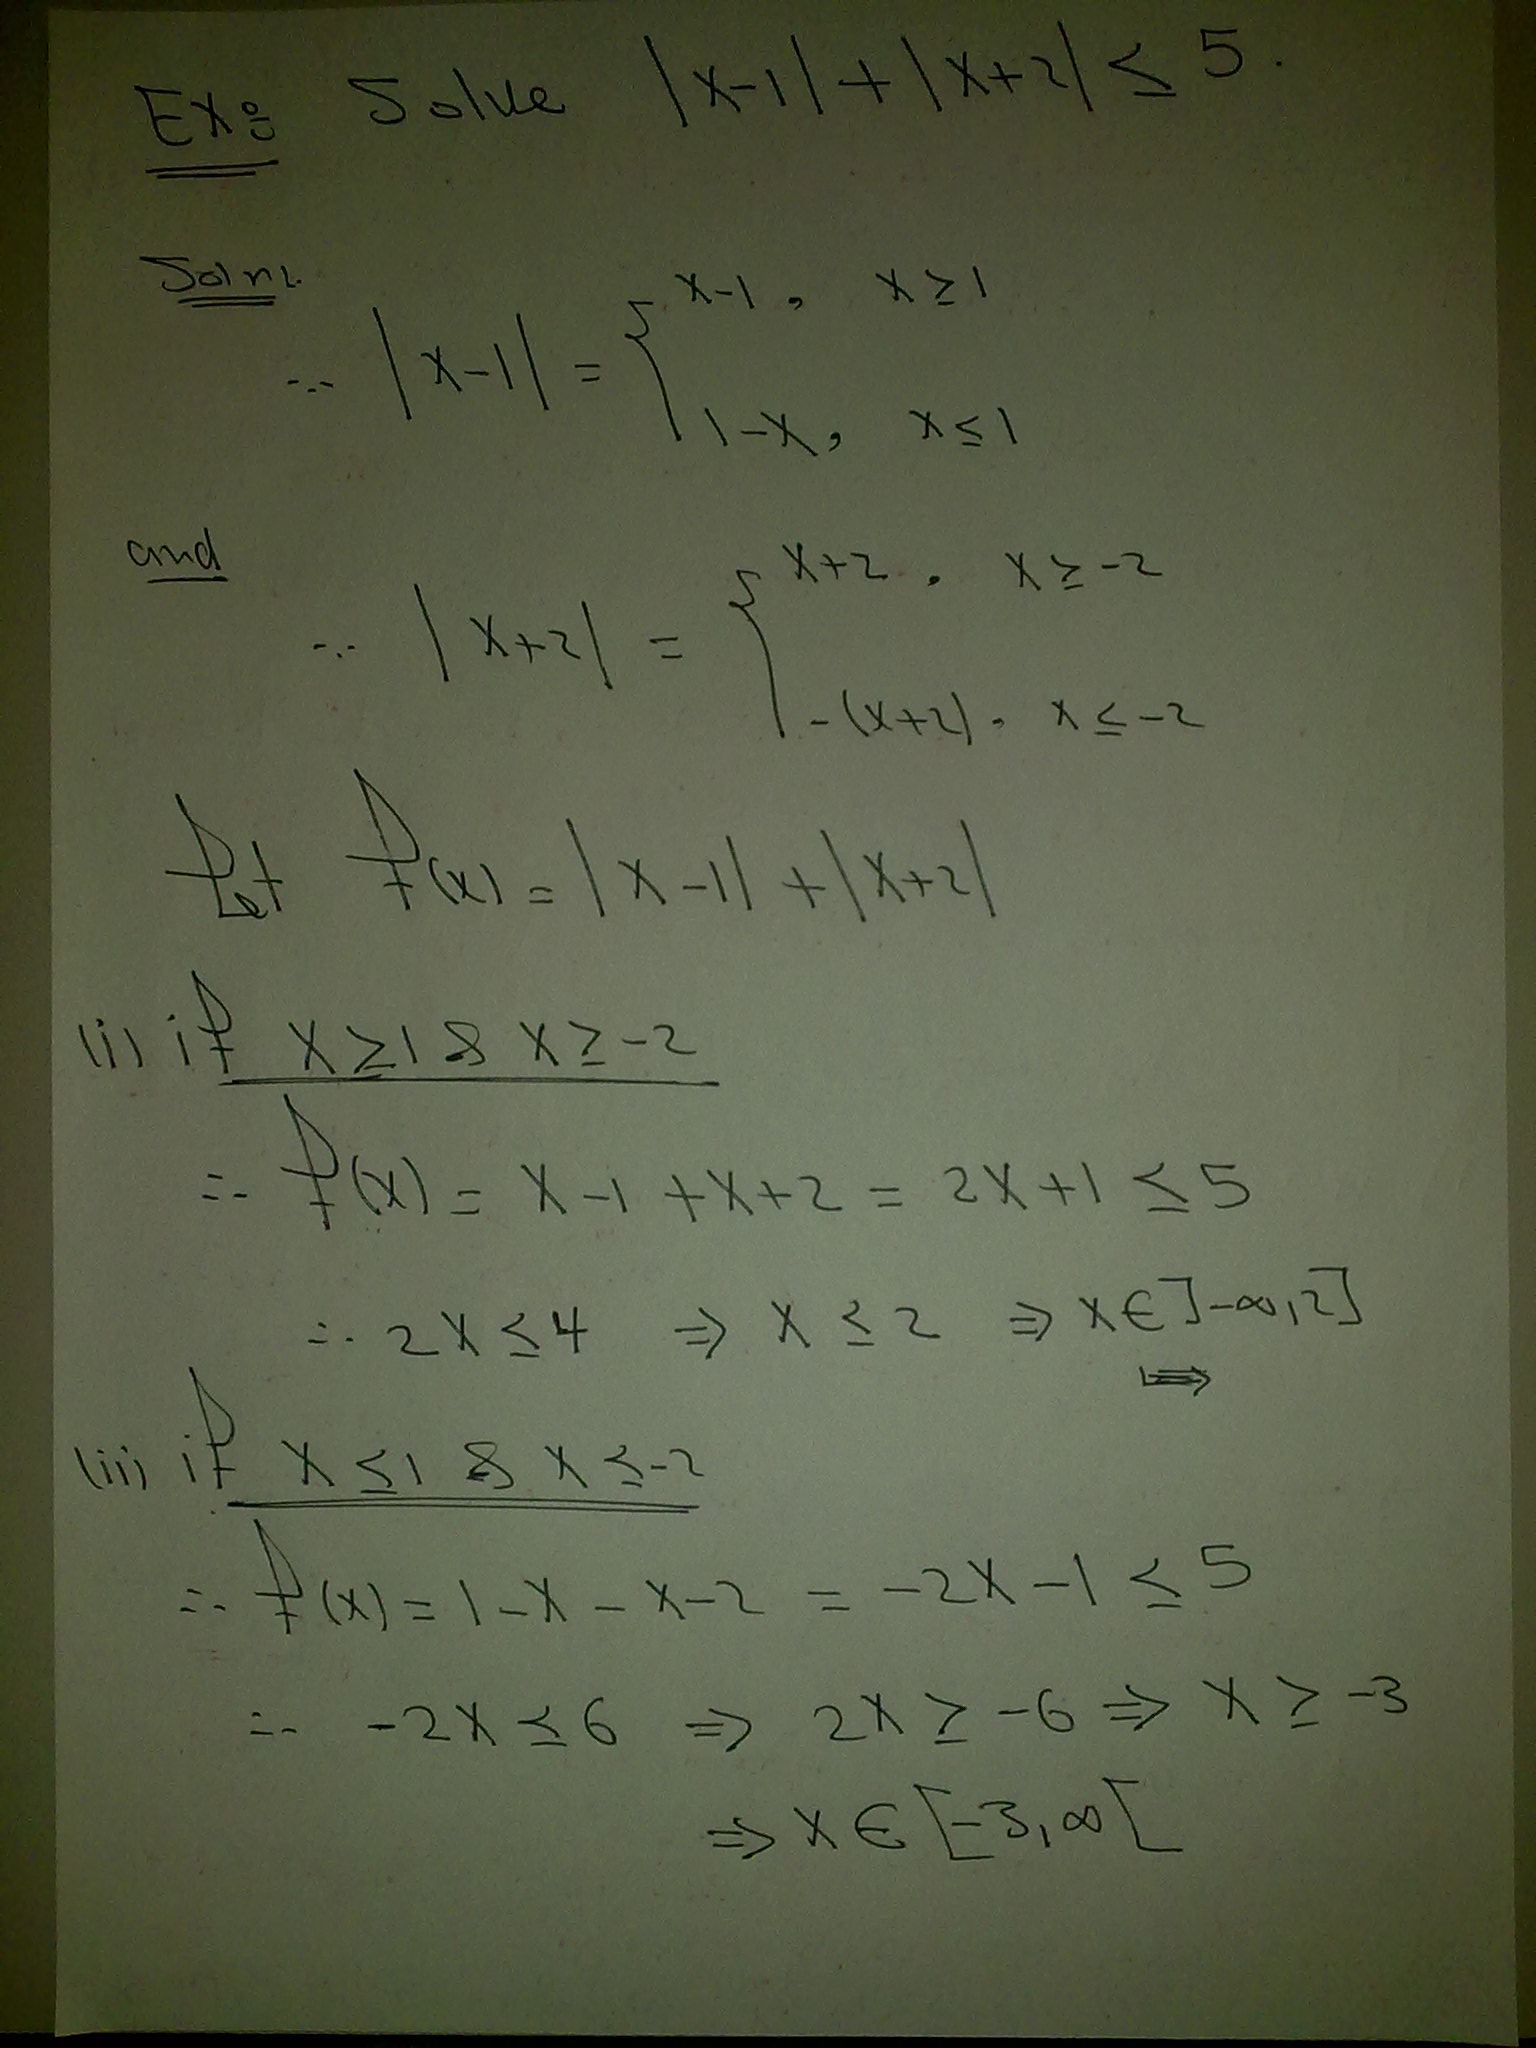 Ex: Solve |x-1|+|x+2| ≤ 5.
Soln.
∵ |x-1| = { x-1, x ≥ 1
1-x, x ≤ 1
and
∵ |x+2| = { x+2, x ≥ -2
-(x+2), x ≤ -2
Let f(x) = |x-1|+|x+2|
(i) if x ≥ 1 & x ≥ -2
∴ f(x) = x-1+x+2 = 2x+1 ≤ 5
∴ 2x ≤ 4 ⇒ x ≤ 2 ⇒ x ∈ ]-∞, 2]
⇒
(ii) if x ≤ 1 & x ≤ -2
∴ f(x) = 1-x-x-2 = -2x-1 ≤ 5
∴ -2x ≤ 6 ⇒ 2x ≥ -6 ⇒ x ≥ -3
⇒ x ∈ [-3, ∞[